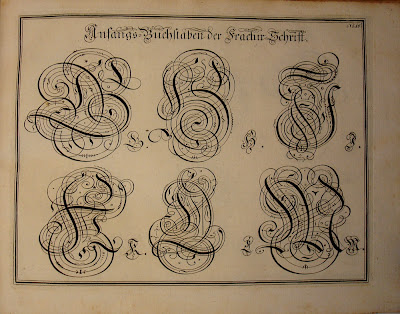 Anfangs-Buchstaben der Fractur-Schrifft.
G. H. I.
K. L. M.